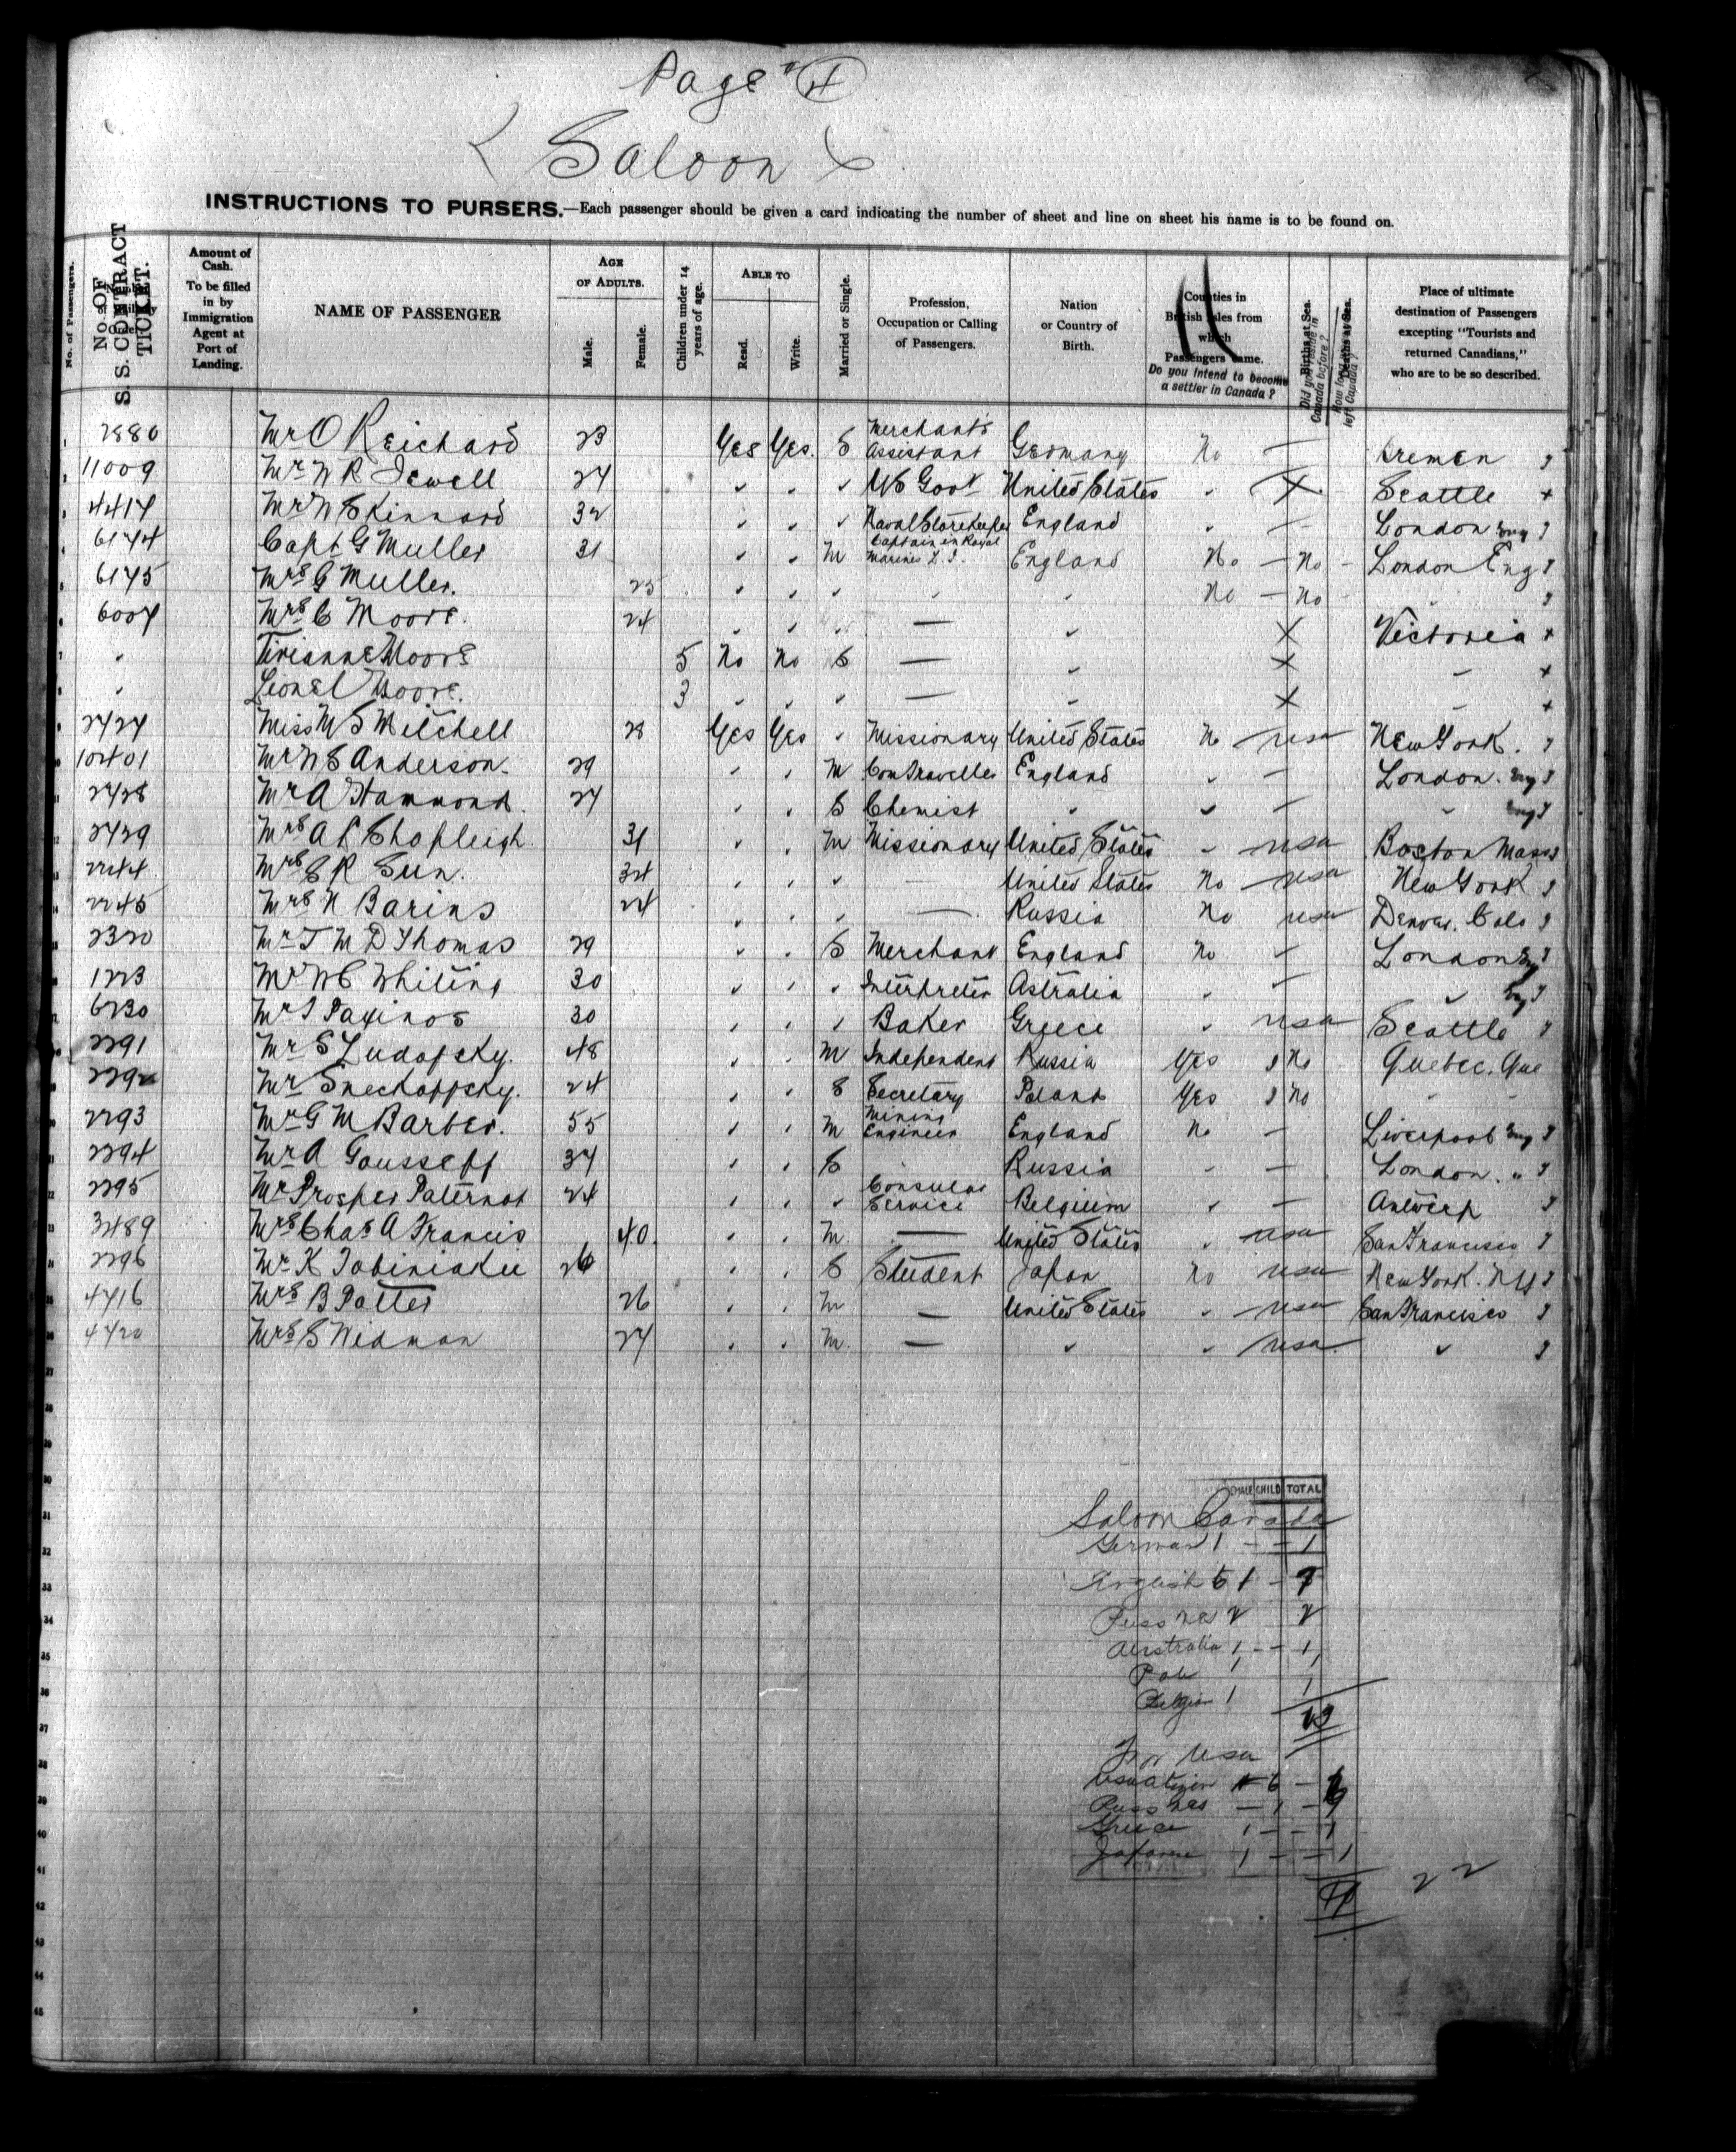 Page 4
Saloon
INSTRUCTIONS TO PURSERS.—Each passenger should be given a card indicating the number of sheet and line on sheet his name is to be found on.
No. of Passengers. No. OF S. S. CONTRACT TICKET. Amount of Cash. To be filled in by Immigration Agent at Port of Landing. NAME OF PASSENGER AGE OF ADULTS. Male. Female. Children under 14 years of age. ABLE TO Read. Write. Married or Single. Profession, Occupation or Calling of Passengers. Nation or Country of Birth. Counties in British Isles from which Passengers came. Do you intend to become a settler in Canada? Births at Sea. Deaths at Sea. Place of ultimate destination of Passengers excepting "Tourists and returned Canadians," who are to be so described.
1 2880 Mr O Reichard 23 Yes Yes. S Merchants Assistant Germany No — Bremen
2 11009 Mr W R Jewell 24 " " " US Govt United States " X Seattle +
3 4414 Mr W Skinnard 32 " " " Naval Storekeeper England " — London Eng
4 6144 Capt G Muller 31 " " M Captain in Royal Marines L. I. England No — No — London Eng
5 6145 Mrs G Muller. 25 " " " " " No — No "
6 6004 Mrs C Moore. 24 " " " — " X Victoria +
7 " Moore 5 No No S — " X " +
8 " Lionel Moore. 3 " " " — " X " +
9 2424 Miss M S Mitchell 28 Yes Yes " Missionary United States No — usa New York.
10 10401 Mr W S Anderson. 29 " " M Com Traveller England " — London. Eng
11 2428 Mr A Hammond. 24 " " S Chemist " " — " Eng
12 2429 Mrs A L Shapleigh 31 " " M Missionary United States " — usa Boston Mass
13 2244 Mrs S R Sun. 34 " " " — United States No — usa New York
14 2245 Mrs N Barins 24 " " " — Russia No usa Denver. Colo
15 2320 Mr T M D Thomas 29 " " S Merchant England No — London Eng
16 1223 Mr W C Whiting 30 " " " Interpreter Astralia " — " Eng
17 6230 Mr Paxinos 30 " " " Baker Greece " usa Seattle
18 2291 Mr S Ludofsky. 48 " " M Independent Russia Yes No Quebec. Que
19 2292 Mr Snechoffsky. 24 " " S Secretary Poland Yes No " "
20 2293 Mr G M Barber. 55 " " M Mining Engineer England No — Liverpool Eng
21 2294 Mr A Gousseff 34 " " S Russia " — London. "
22 2295 Mr Prosper Paternot 24 " " " Consular Service Belgium " — Antwerp
23 3489 Mrs Chas A Francis 40. " " M — United States " usa San Francisco
24 2296 Mr K Tobiniaku 26 " " S Student Japan No usa New York. NY
25 4416 Mrs B Potter 26 " " M — United States " usa San Francisco
26 4420 Mrs S Widman 24 " " M. — " " usa "
27
28
29
30
31
32
33
34
35
36
37
38
39
40
41
42
43
44
45
FEMALE CHILD TOTAL
Saloon Canada
German 1 – – 1
English 6 1 – 7
Russian 2 2
Australia 1 – – 1
Pole 1 1
Belgian 1 1
13
For Usa
Usa citizen 6 – 6
Russians — 1 – 1
Greece 1 – – 1
Japanese 1 – – 1
22